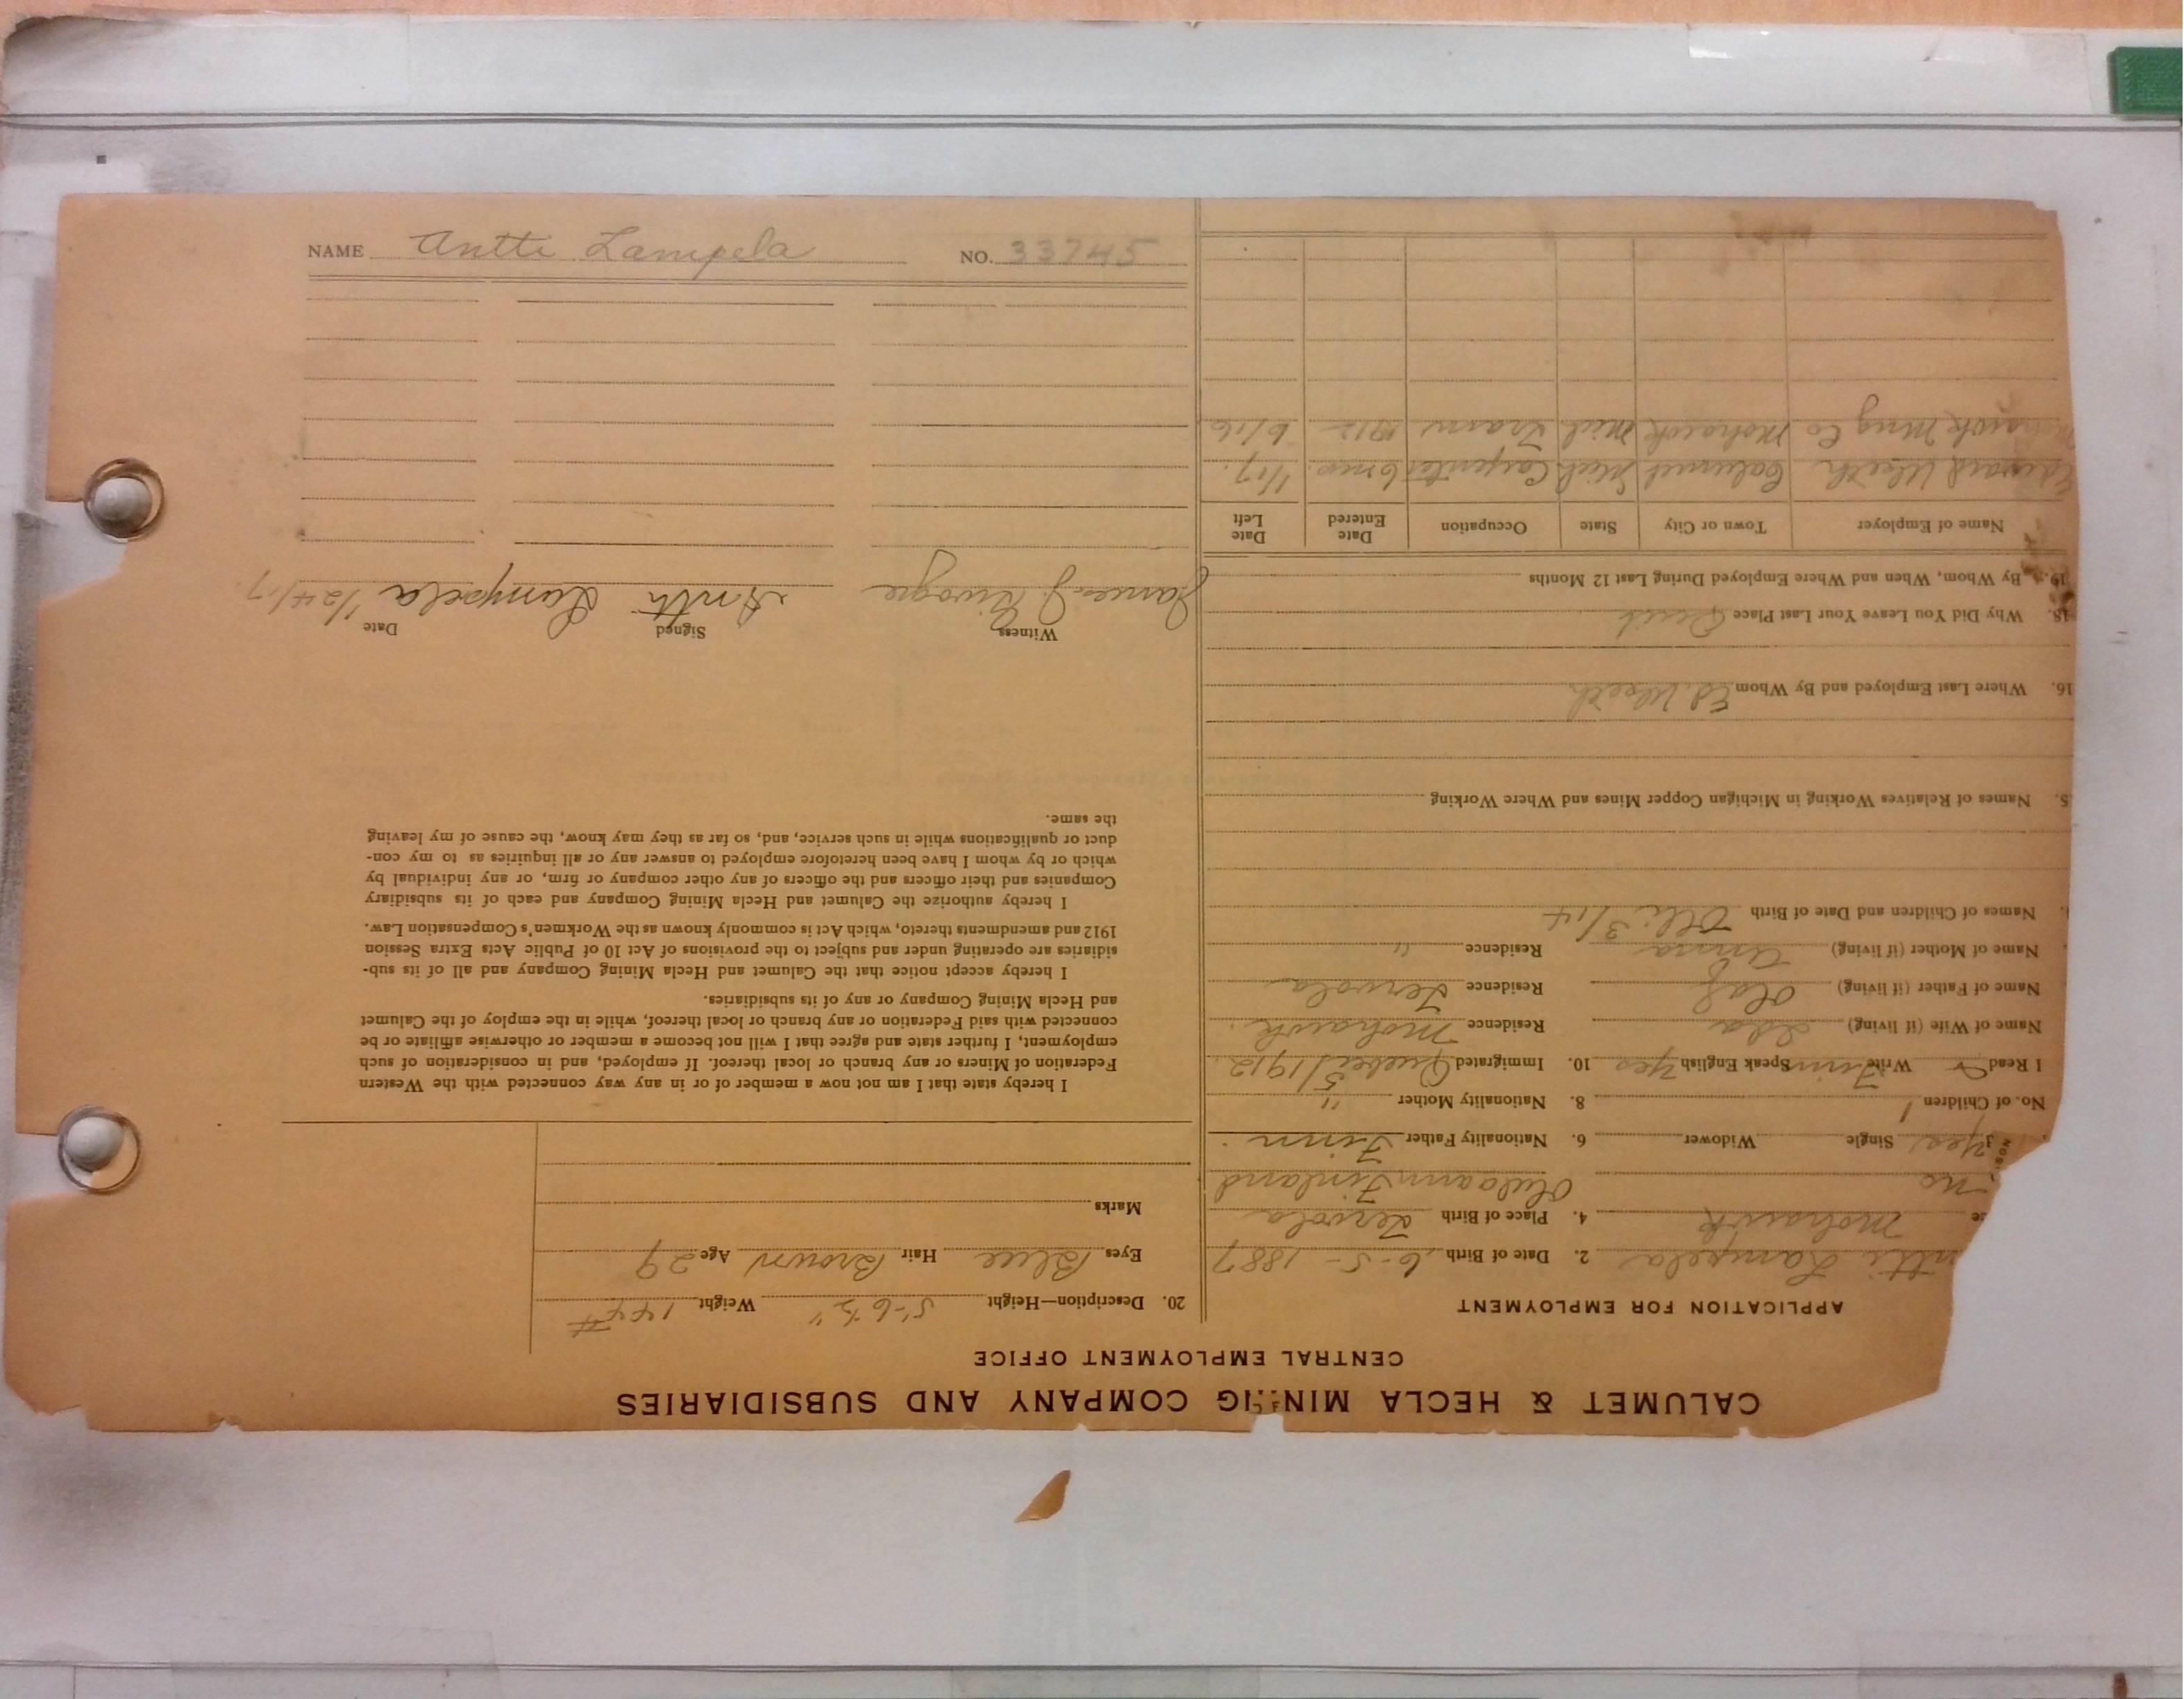 NAME Antti Lampela NO. 33745
CALUMET & HECLA MINING COMPANY AND SUBSIDIARIES
CENTRAL EMPLOYMENT OFFICE
APPLICATION FOR EMPLOYMENT
ntti Lampela 2. Date of Birth 6-5-1887
ce Mohawk 4. Place of Birth Tervola
no Finland
yes Single Widower 6. Nationality Father Finn
No. of Children 1 8. Nationality Mother "
I Read Write Finn Speak English yes 10. Immigrated 5/1912
Name of Wife (if living) Ida Residence Mohawk
Name of Father (if living) Olaf Residence Tervola
Name of Mother (if living) Anna Residence "
Names of Children and Date of Birth Olli 3/14
5. Names of Relatives Working in Michigan Copper Mines and Where Working
16. Where Last Employed and By Whom Ed.
18. Why Did You Leave Your Last Place Quit
19. By Whom, When and Where Employed During Last 12 Months
Name of Employer Town or City State Occupation Date Entered Date Left
Edward Calumet Mich Carpenter 6 mos. 1/17.
Mohawk Mng Co Mohawk Mich Tram 1912 6/16.
20. Description—Height 5'-6½" Weight 144#
Eyes Blue Hair Brown Age 29
Marks
I hereby state that I am not now a member of or in any way connected with the Western
Federation of Miners or any branch or local thereof. If employed, and in consideration of such
employment, I further state and agree that I will not become a member or otherwise affiliate or be
connected with said Federation or any branch or local thereof, while in the employ of the Calumet
and Hecla Mining Company or any of its subsidiaries.
I hereby accept notice that the Calumet and Hecla Mining Company and all of its sub-
sidiaries are operating under and subject to the provisions of Act 10 of Public Acts Extra Session
1912 and amendments thereto, which Act is commonly known as the Workmen's Compensation Law.
I hereby authorize the Calumet and Hecla Mining Company and each of its subsidiary
Companies and their officers and the officers of any other company or firm, or any individual by
which or by whom I have been heretofore employed to answer any or all inquiries as to my con-
duct or qualifications while in such service, and, so far as they may know, the cause of my leaving
the same.
Witness Signed Date
James J. Antti Lampela 1/24/17